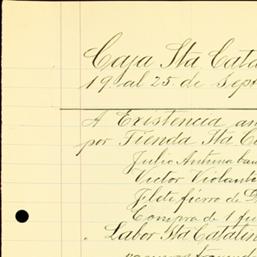 Caja Sta Cata
19 al 25 de Sept
A Existencia an
por Tienda Sta C
Julio Antuna
Victor Violant
Flete fierro de D
Compra de 1
Labor Sta Catalin